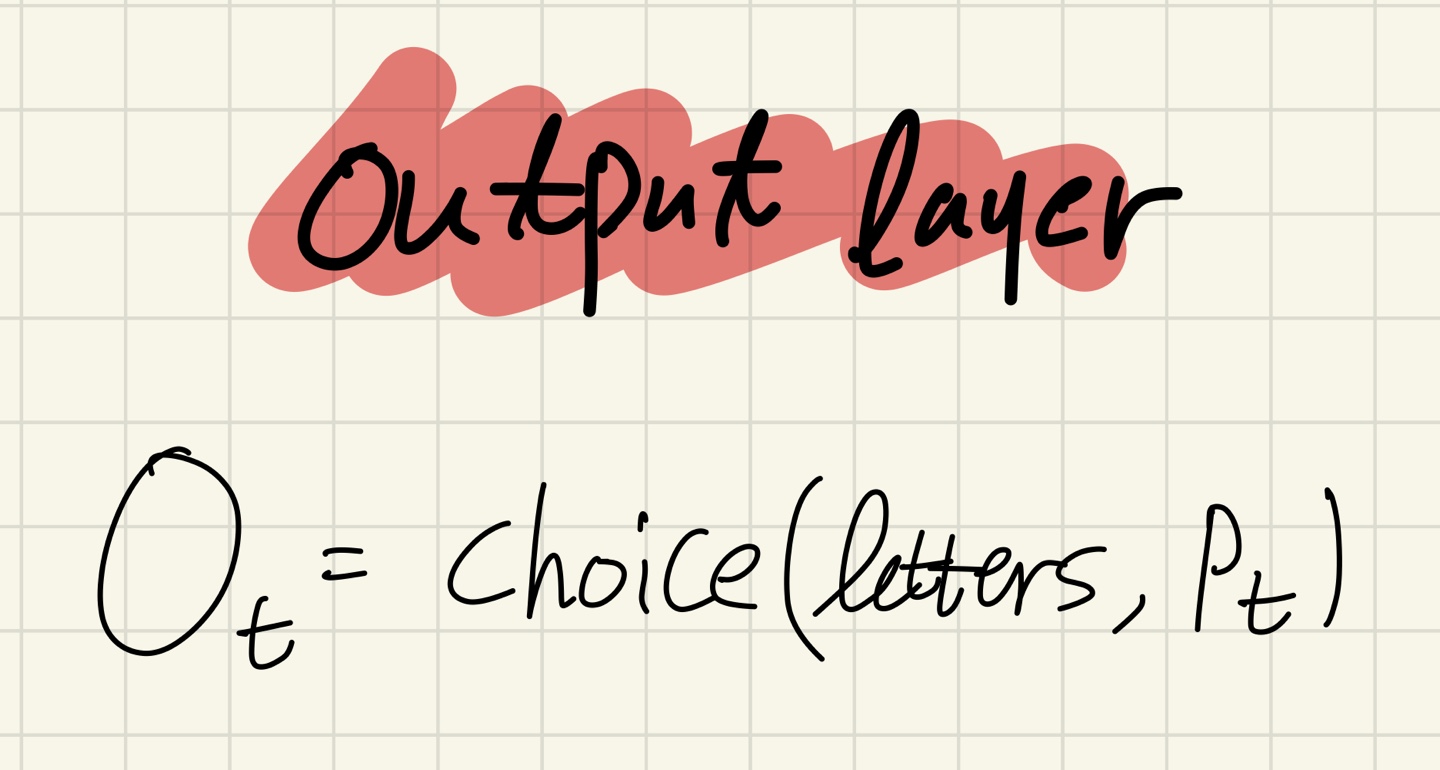 Output layer
O_t = choice(letters, P_t)